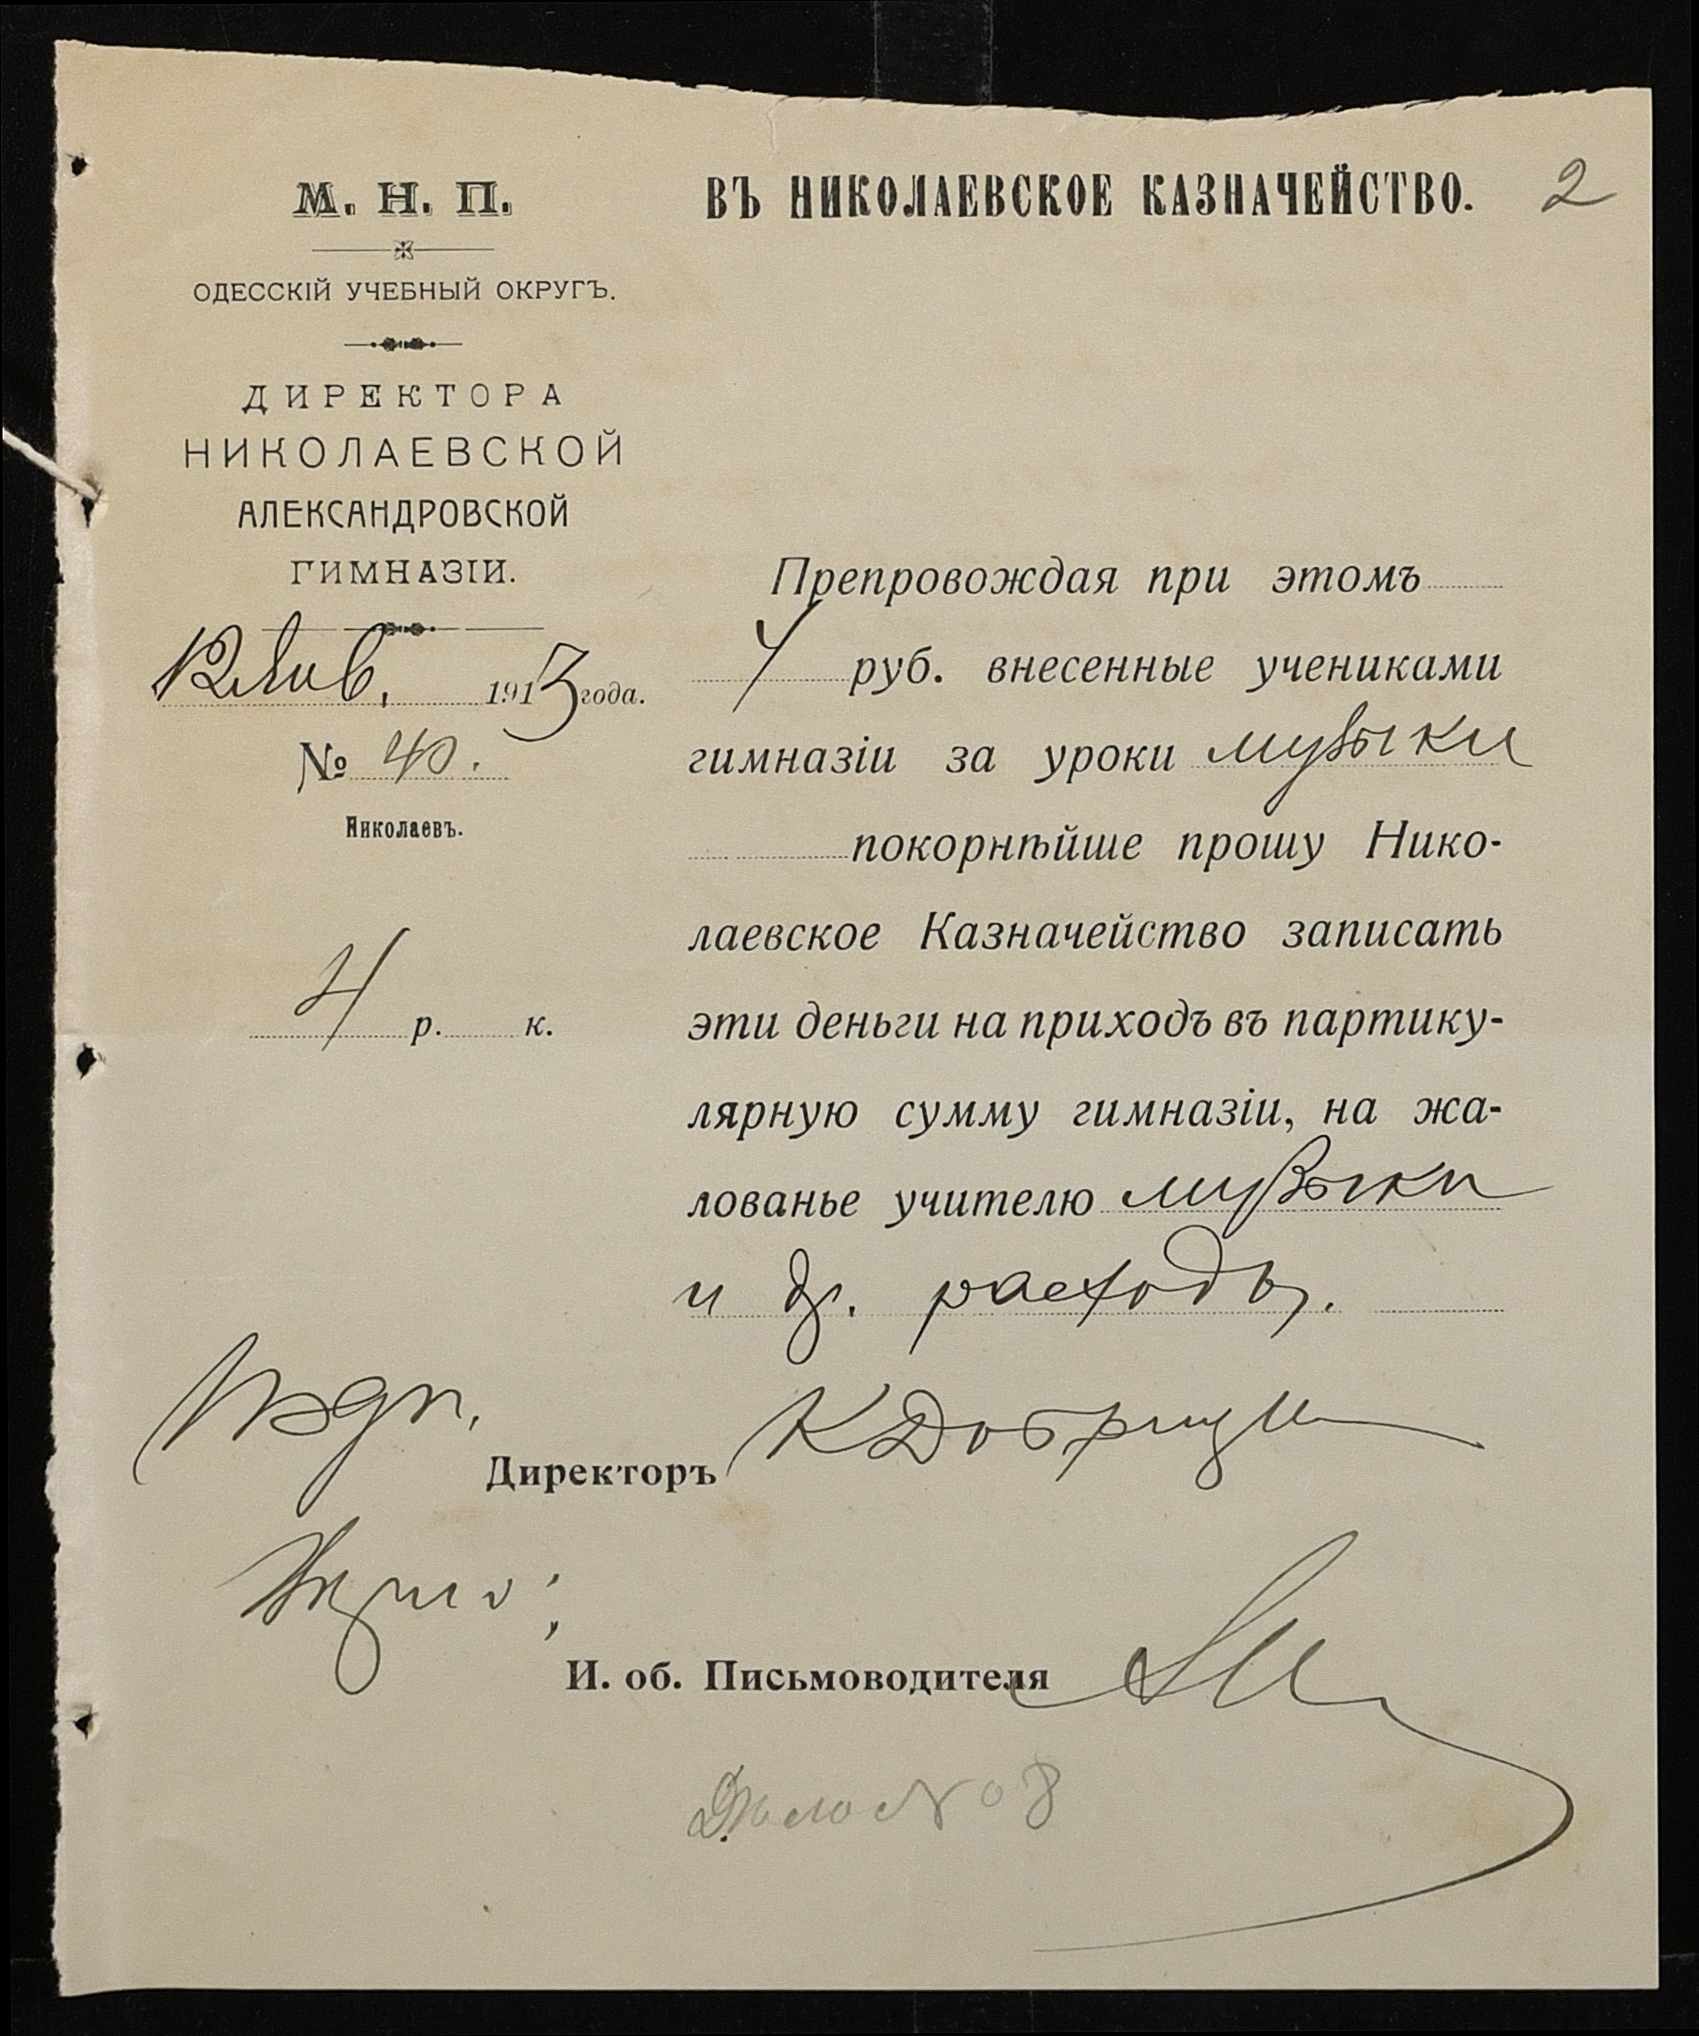 М. Н. П.
ОДЕССКІЙ УЧЕБНЫЙ ОКРУГЪ.
ДИРЕКТОРА
НИКОЛАЕВСКОЙ
АЛЕКСАНДРОВСКОЙ
ГИМНАЗІИ.
12 Янв. 1913 года.
№ 40.
Николаевъ.
4 р. к.
ВЪ НИКОЛАЕВСКОЕ КАЗНАЧЕЙСТВО.
2
Препровождая при этомъ
4 руб. внесенные учениками
гимназіи за уроки музыки
покорнѣйше прошу Нико-
лаевское Казначейство записать
эти деньги на приходъ въ партику-
лярную сумму гимназіи, на жа-
лованье учителю музыки
и др. расходы.
Директоръ
И. об. Письмоводителя
Дѣло № 8